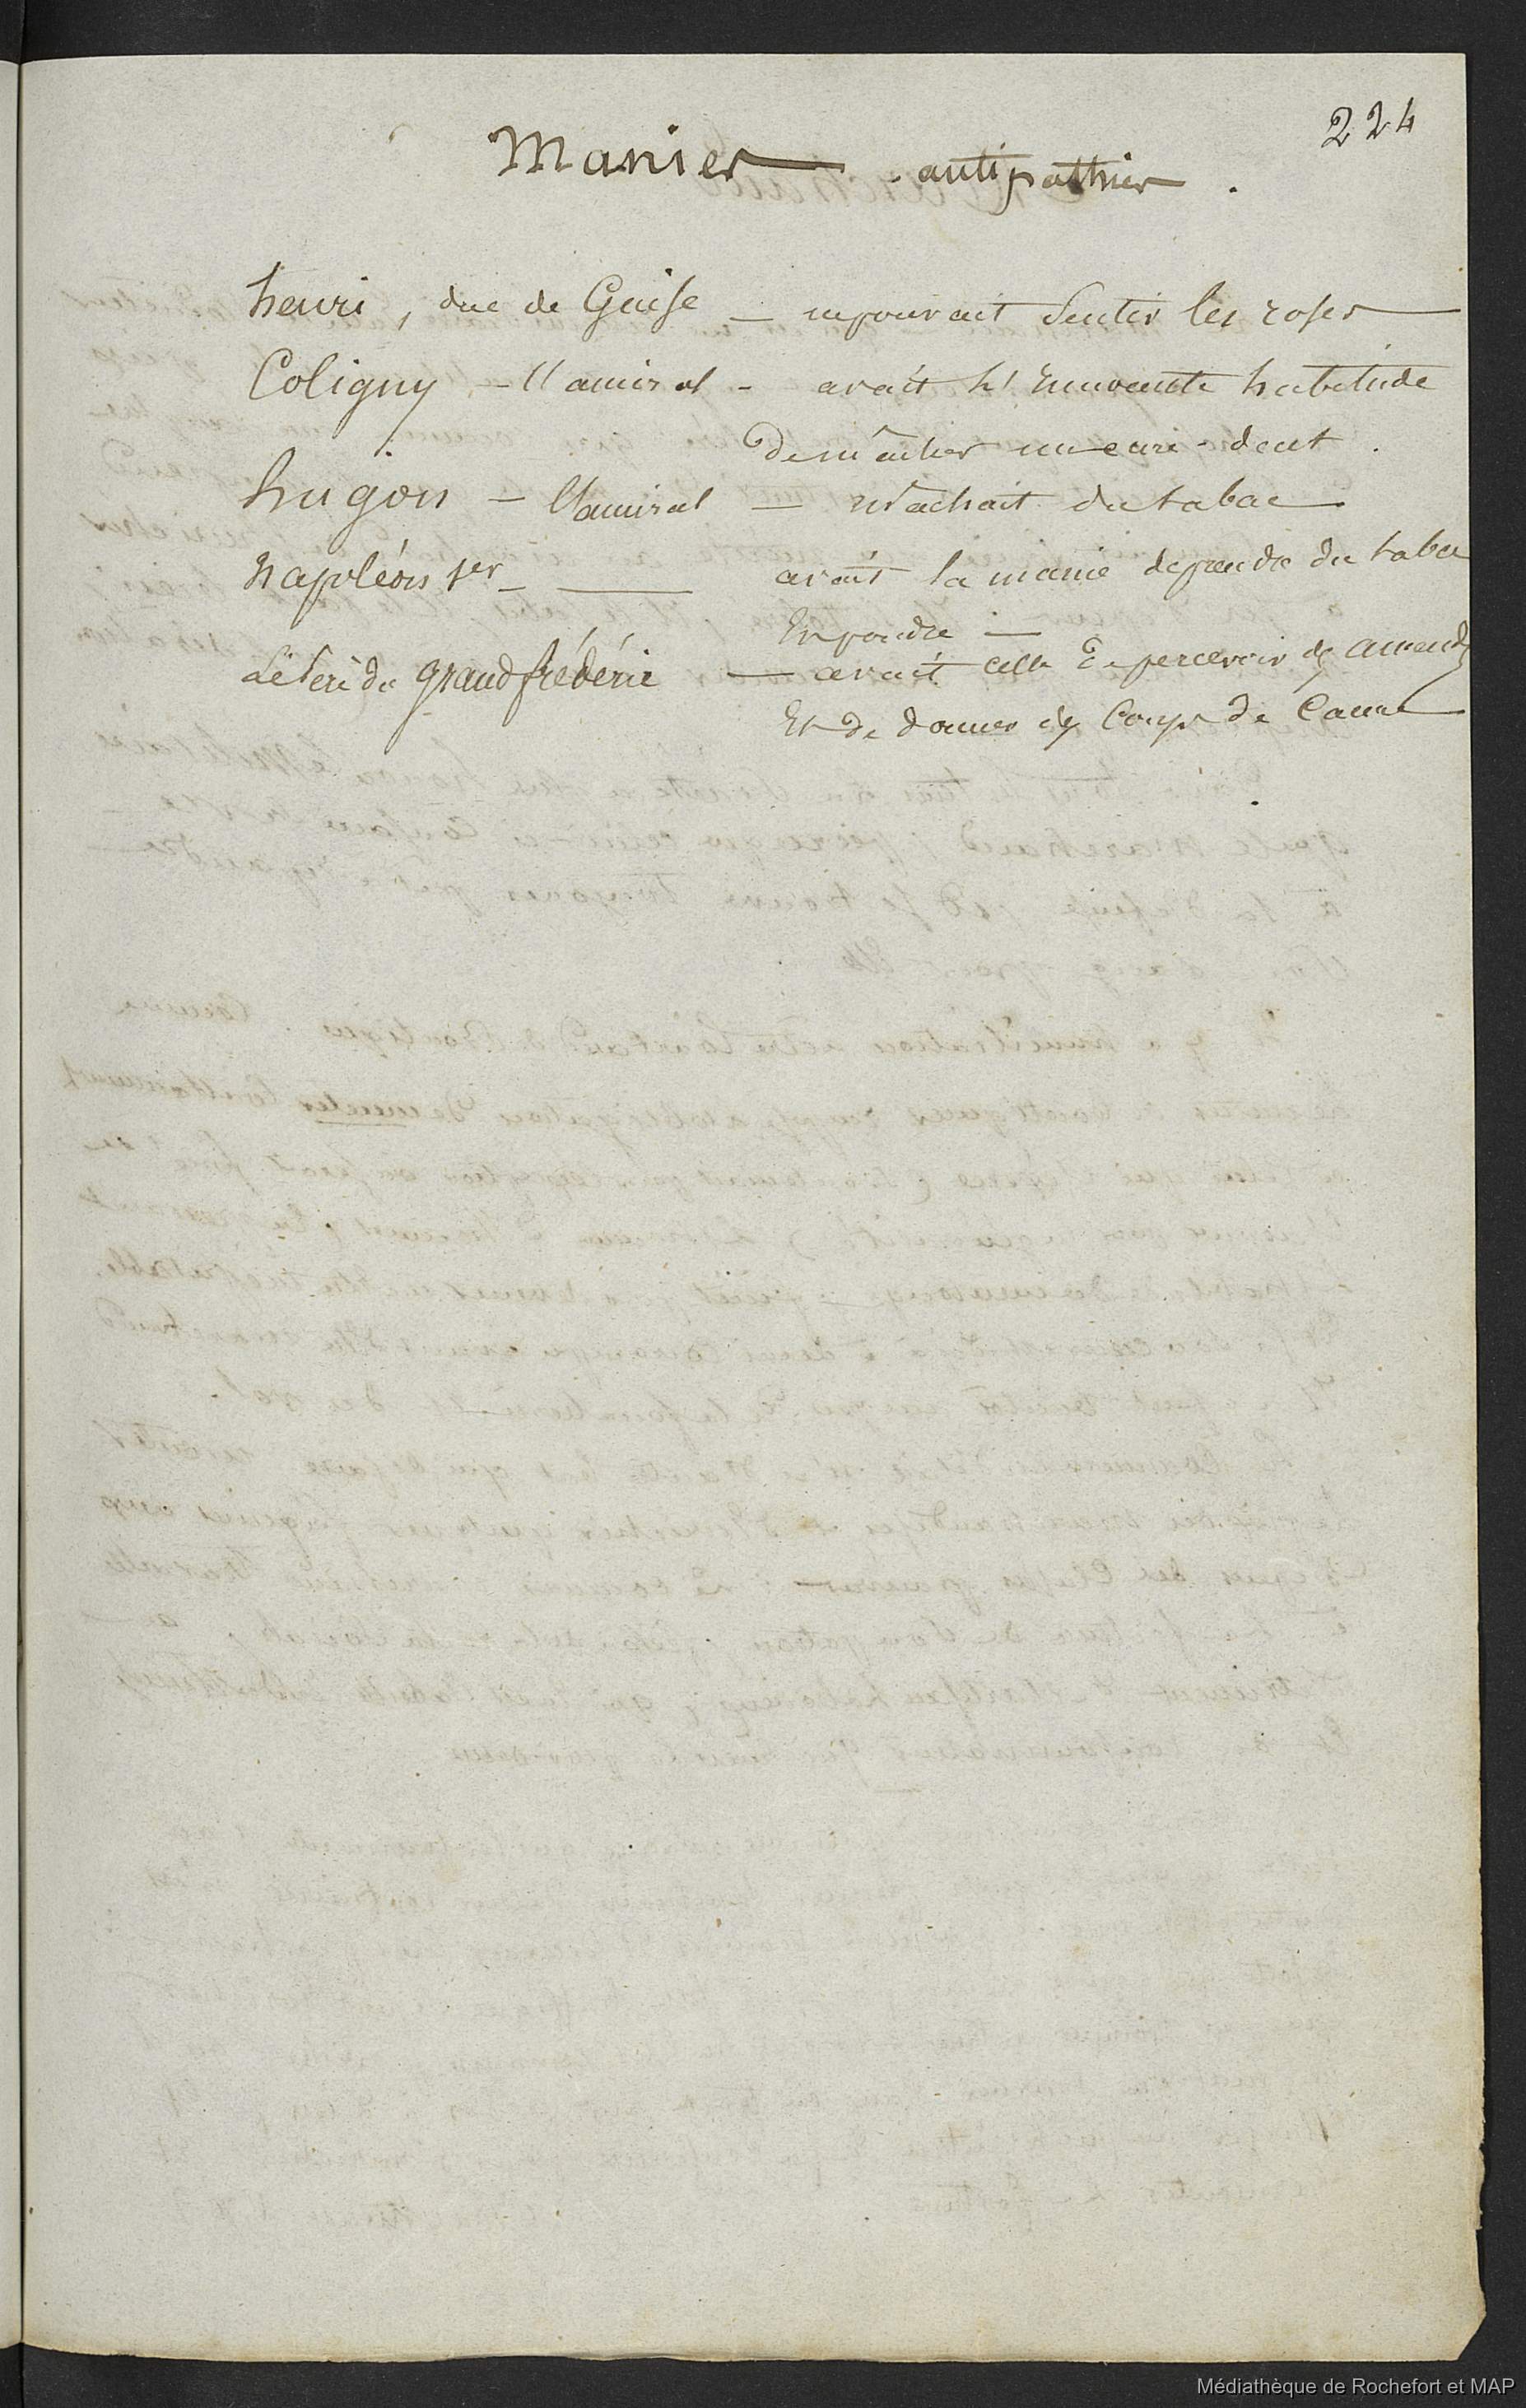 224
Manies — antipathies.
henri, duc de Guise — ne pouvait sentir les roses —
Coligny — l'amiral — avait l'innocente habitude
de mâcher un cure-dent.
hugon — l'amiral — mâchait du tabac —
Napoléon 1er — — avait la manie de prendre du tabac
En poudre —
Le Père du grand frédéric — avait celle de percevoir des amendes
Et de donner des coups de Canne —
Médiathèque de Rochefort et MAP